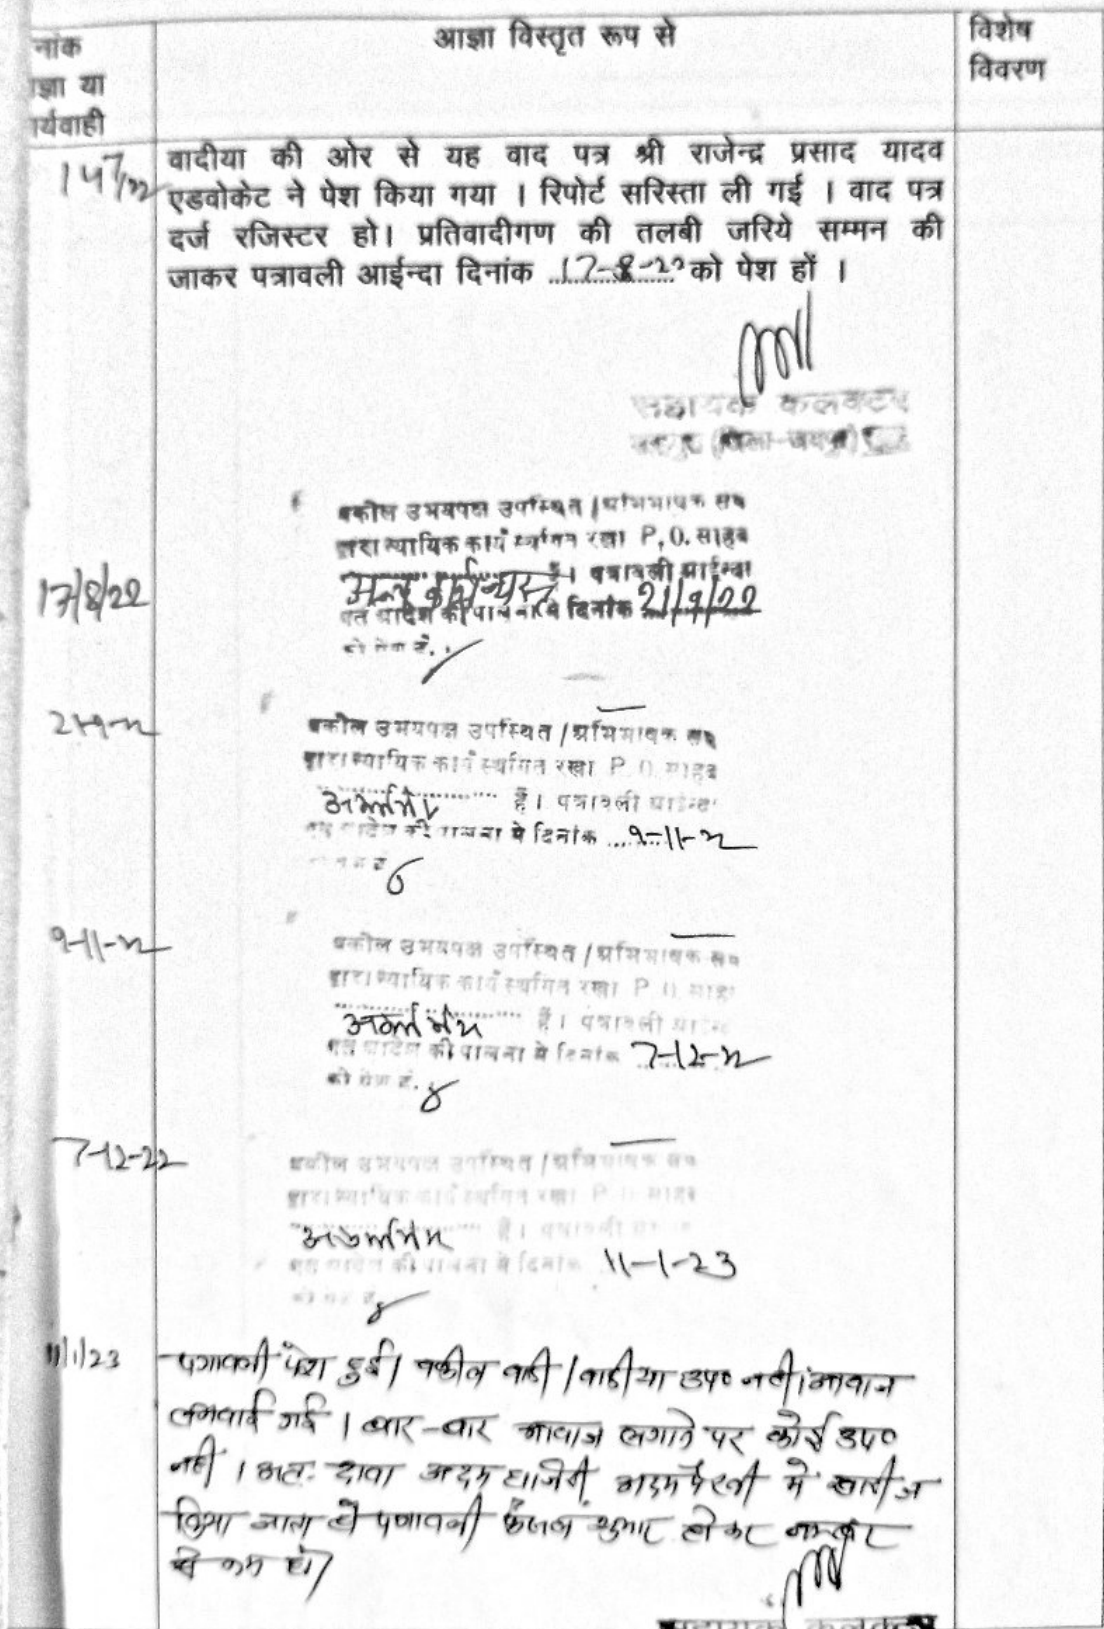 नांक
ज्ञा या
र्यवाही
आज्ञा विस्तृत रूप से
विशेष
विवरण
14/7/22
वादीया की ओर से यह वाद पत्र श्री राजेन्द्र प्रसाद यादव
एडवोकेट ने पेश किया गया । रिपोर्ट सरिस्ता ली गई । वाद पत्र
दर्ज रजिस्टर हो। प्रतिवादीगण की तलबी जरिये सम्मन की
जाकर पत्रावली आईन्दा दिनांक 17-8-22 को पेश हों ।
सहायक कलक्टर
17/8/22
वकील उभयपक्ष उपस्थित / अभिभाषक संघ
द्वारा न्यायिक कार्य स्थगित रखा P.O. साहब
अन्य कार्य व्यस्त है। पत्रावली आईन्दा
गत आदेश की पालना में दिनांक 21/9/22
को पेश हो.
21-9-22
वकील उभयपक्ष उपस्थित / अभिभाषक संघ
द्वारा न्यायिक कार्य स्थगित रखा P.O. साहब
है। पत्रावली आईन्दा
गत आदेश की पालना में दिनांक 9-11-22
9-11-22
वकील उभयपक्ष उपस्थित / अभिभाषक संघ
द्वारा न्यायिक कार्य स्थगित रखा P.O. साहब
है। पत्रावली आईन्दा
गत आदेश की पालना में दिनांक 7-12-22
को पेश हो.
7-12-22
वकील उभयपक्ष उपस्थित / अभिभाषक संघ
द्वारा न्यायिक कार्य स्थगित रखा P.O. साहब
है। पत्रावली
गत आदेश की पालना में दिनांक 11-1-23
11/1/23
पत्रावली पेश हुई। वकील वादी / वादीया उप० नहीं। आवाज
लगवाई गई । बार-बार आवाज लगाने पर कोई उप०
नहीं । अतः दावा अदम हाजिरी अदम पैरवी में खारीज
किया जाता है पत्रावली फैसल शुमार होकर नम्बर
से कम हो।
सहायक कलक्टर